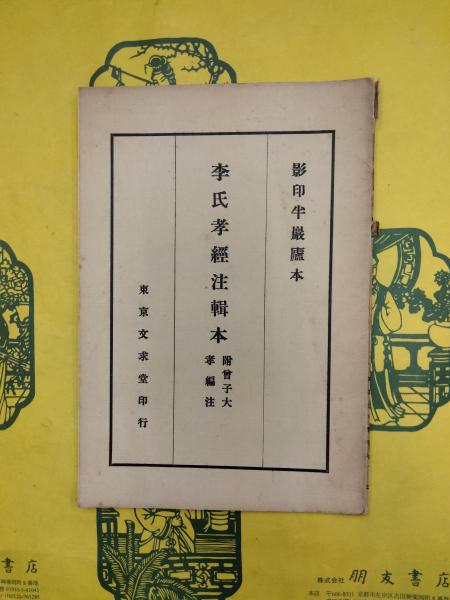 影印半巖廬本
李氏孝經注輯本
附曾子大
孝編注
東京文求堂印行
書店
株式会社 朋友書店